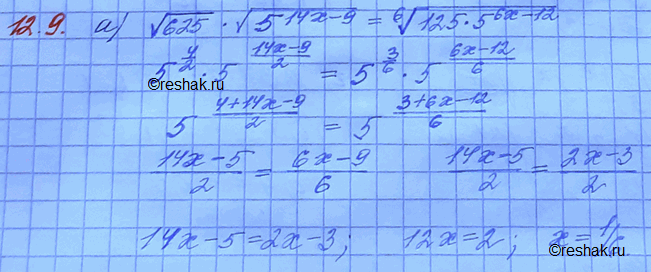 12.9. а) √625 · √5^(14x-9) = ⁶√125·5^(6x-12)
5^(4/2) · 5^((14x-9)/2) = 5^(3/6) · 5^((6x-12)/6)
©reshak.ru
5^((4+14x-9)/2) = 5^((3+6x-12)/6)
(14x-5)/2 = (6x-9)/6 (14x-5)/2 = (2x-3)/2
14x-5=2x-3; 12x=2; x=1/
©reshak.ru